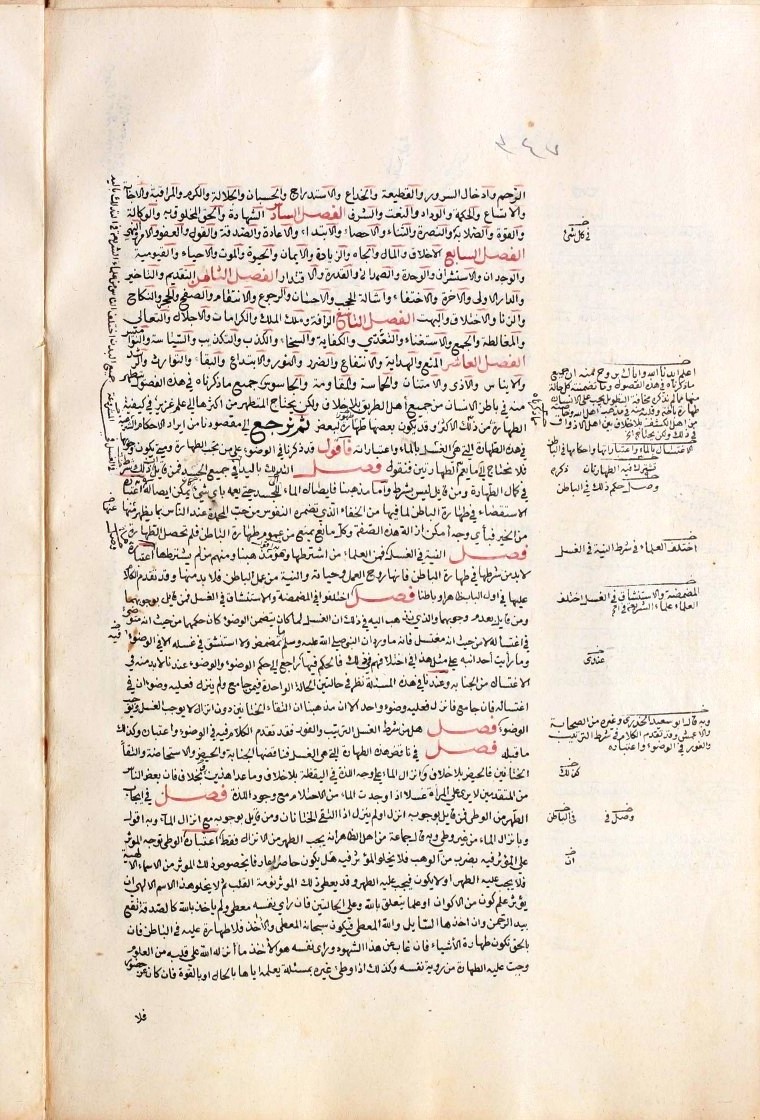 الرحم وادخال السرور والقطيعة والخداع والاستدراج والحسبان والجلالة والكرم والمراقبة والاجابة
والاتساع والحكمة والوداد والبعث والشرف الفصل السادس الشهادة والحق المخلوق به والوكالة
والقوة والصلابة والنصرة والثناء والاحصاء والابتداء والاعادة والصدقة والقول والعفو والامر والنهي
الفصل السابع الاخلاق والمال والجاه والزيادة والايمان والحيوة والموت والاحياء والقيومية
والوجدان والاستشراف والوحدة والصمدانية والقدرة والاقتدار الفصل الثامن التقديم والتاخير
والدار الاولى والآخرة والاختفاء واشالة الحجب والاحسان والرجوع والانتقام والصفح والهجر والنكاح
والزنا والاختلاق والبهت الفصل التاسع الرأفة وملك الملك والكرامات والاجلال والتعالي
والمغالطة والجمع والاستغناء والتعدي والكفاية والسخاء والكذب والتكذيب والسياسة والنواميس
الفصل العاشر المنع والهداية والانتفاع والضرر والنور والابتداع والبقاء والتوارث والرشد
والايناس والاذى والامتنان والحماسة والمقاومة والجاسوس جميع ما ذكرناه في هذه الفصول يتطهر
منه في باطن الانسان من جميع اهل الطريق بلا خلاف ولكن يحتاج المتطهر من اكثرها الى علم غزير في كيفية
الطهارة من ذلك الاكثر وقد يكون بعضها طهارة لبعض ثم نرجع الى مقصودنا من ايراد الاحكام المشروعة
في هذه الطهارة التي هي الغسل بالماء واعتباراته فاقول قد ذكرنا في الوضوء على من يجب الطهارة ومتى تكون
فلا نحتاج الى ما يعم الطهارتين فنقول فصل التدلك باليد في جميع الجسد
في كمال الطهارة ومن قائل ليس بشرط واما مذهبنا فايصال الماء الى الجسد حتى يعمه باي شيء يمكن ايصاله اعتباره
الاستقصاء في طهارة الباطن لما فيها من الخفاء الذي تضمره النفوس من حب المحمدة عند الناس بما يظهر منها
من الخير فبأي وجه امكن ازالة هذه الصفة وكل مانع يمنع من عموم طهارة الباطن فلم تحصل الطهارة
فصل النية في الغسل فمن العلماء من اشترطها وهو مذهبنا ومنهم من لم يشترطها اعتباره
لا بد من شرطها في طهارة الباطن فانها روح العمل وحياته والنية من عمل الباطن فلا بد منها وقد تقدم الكلام
عليها في اول الباب ظاهرا وباطنا فصل اختلفوا في المضمضة والاستنشاق في الغسل فمن قائل بوجوبهما
ومن قائل بعدم وجوبهما والذي نذهب اليه في ذلك ان الغسل لما كان يتضمن الوضوء كان حكمهما من حيث انه متوضئ
في اغتساله لا من حيث انه مغتسل فانه ما ورد ان النبي صلى الله عليه وسلم تمضمض ولا استنشق في غسله الا في الوضوء
وما رايت احدا نبه على مثل هذا في اختلافهم في ذلك فالحكم فيها راجع الى حكم الوضوء والوضوء عندنا لا بد منه في
الاغتسال من الجنابة وعندنا في هذه المسئلة نظر في حالتين الحالة الواحدة فيمن جامع ولم ينزل فعليه وضوءان في
اغتساله فان جامع فانزل فعليه وضوء واحد الا ان مذهبنا ان التقاء الختانين دون انزال لا يوجب الغسل ويوجب
الوضوء فصل هل من شرط الغسل الترتيب والفور فقد تقدم الكلام فيه في الوضوء واعتباره وكذلك
ما قبله فصل في ناقض هذه الطهارة التي هي الغسل فناقضها الجنابة والحيض والاستحاضة والتقاء
الختانين فالحيض بلا خلاف وانزال الماء على وجه اللذة في اليقظة بلا خلاف وما عدا هذين بخلاف فان بعض الناس
من المتقدمين لا يرى على المرأة غسلا اذا وجدت الماء من الاحتلام مع وجود اللذة فصل في ايجاب
الطهر من الوطئ فمن قائل بوجوبه انزل او لم ينزل اذا التقى الختانان ومن قائل بوجوبه مع انزال الماء وبه اقول
وبانزال الماء من غير وطئ وبه قال جماعة من اهل الظاهر انه يجب الطهر من الانزال فقط اعتباره الوطئ توجه المؤثر
على المؤثر فيه بضرب من الوهب فلا يخلو المؤثر فيه هل يكون حاضرا عارفا بخصوص ذلك المؤثر من الاسماء الالهية
فلا يجب عليه الطهر او لا يكون فيجب عليه الطهر وقد يعطي ذلك المؤثر نومة القلب ثم لا يخلو هذا الاسم الالهي ان
يؤثر علم كون من الاكوان او علما يتعلق بالله وعلى الحالتين فان راى نفسه معطى ولم ياخذ بالله كالصدقة تقع
بيد الرحمن وان اخذها السائل والله المعطي فيكون سبحانه المعطي والآخذ فلا طهارة عليه في الباطن فان
بالحق تكون طهارة الاشياء فان غاب عن هذا الشهود وراى نفسه هو الآخذ ما انزله الله على قلبه من العلوم
وجب عليه الطهارة من رؤية نفسه وكذلك اذا وطئ غيره بمسئلة يعلمه اياها بالحال او بالقول فان كان عن حضور
فلا
في كل شيء
اعلم ايدنا الله واياك بروح منه ان جميع
ما ذكرناه في هذه الفصول وما تضمنته كل حالة
منها مما لم نذكر مخافة التطويل يجب على الانسان
طهارة باطنه وقلبه منه في مذهب اهل الله وخاصته
من اهل الكشف بلا خلاف بين اهل الاذواق
في ذلك ولكن يحتاج الخ
الاغتسال بالماء واعتباراتها واحكامها في الباطن
تشترك فيه الطهارتان ذكره
وصل حكم ذلك في الباطن
اختلف العلماء في شرط النية في الغسل
المضمضة والاستنشاق في الغسل اختلف
العلماء علماء الشريعة في الخ
عندي
وبه قال ابو سعيد الخدري وغيره من الصحابة
والاعمش وقد تقدم الكلام في شرط الترتيب
والفور في الوضوء واعتباره
كذلك
وصل في في الباطن
ان